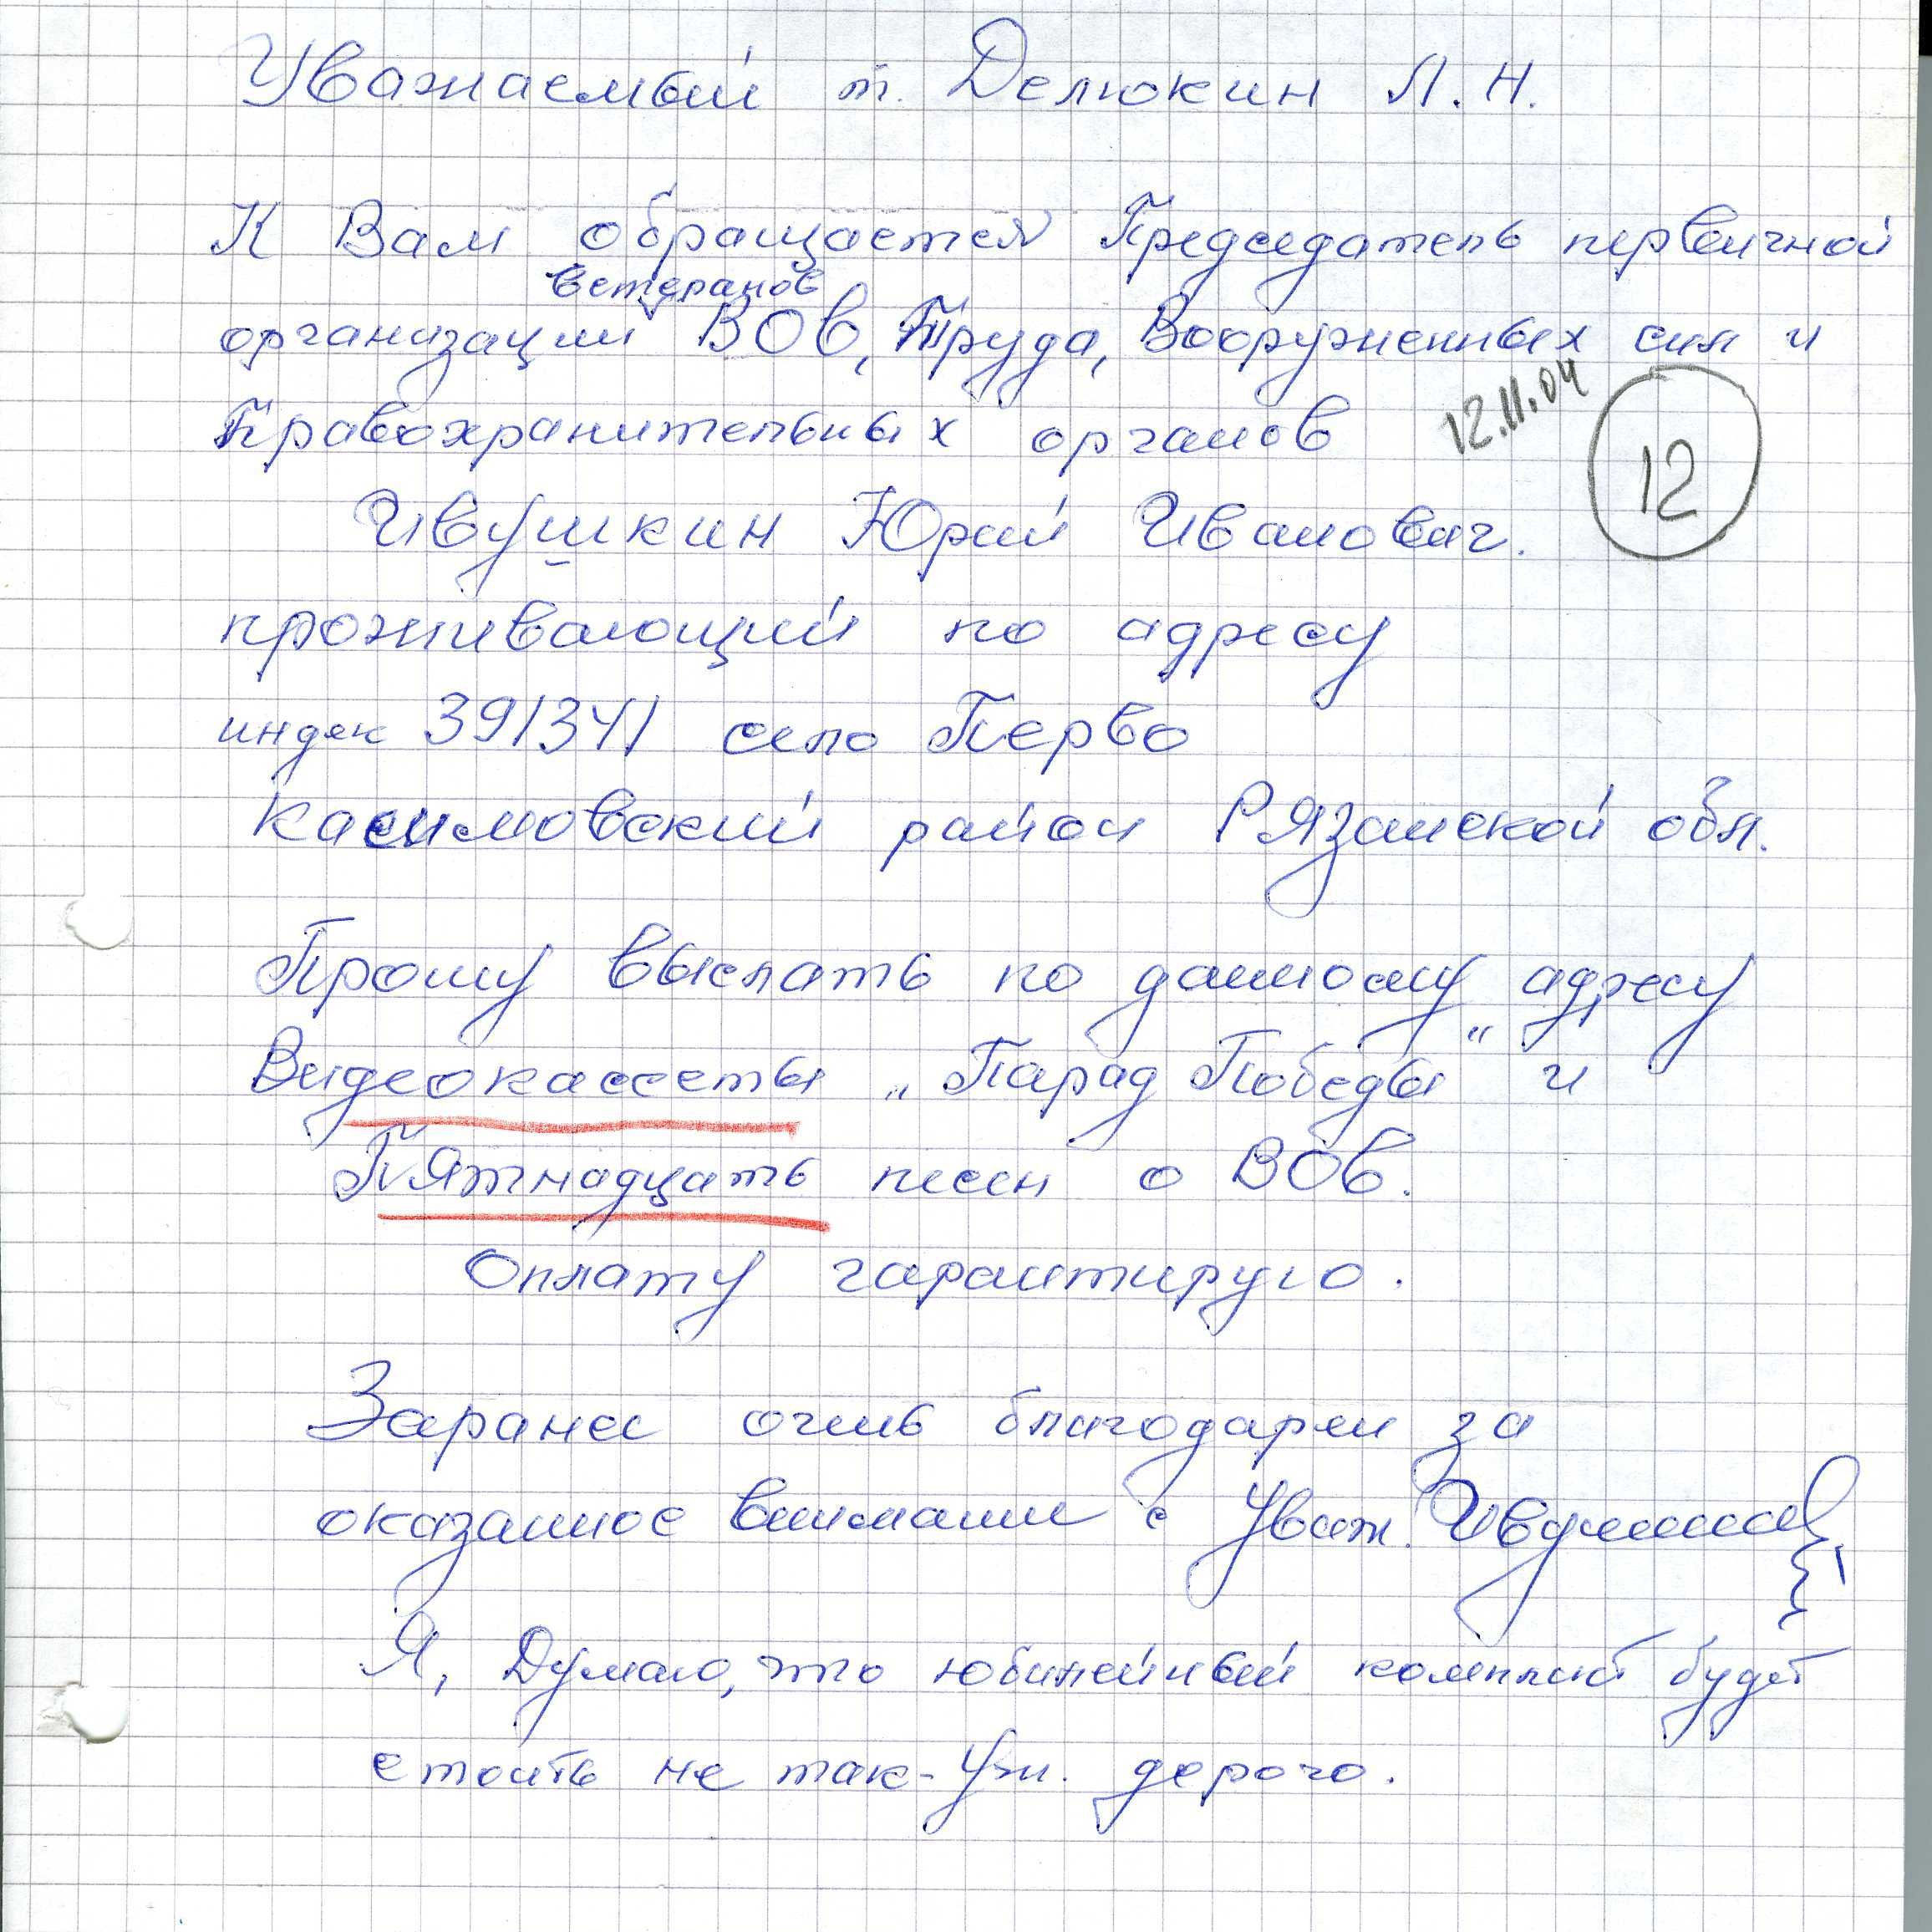 Уважаемый т. Делюкин Л.Н.
К Вам обращается Председатель первичной
ветеранов
организации ВОВ, Труда, Вооруженных сил и
Правохранительных органов
12.11.04
12
Ивушкин Юрий Иванович.
проживающий по адресу
индек 391341 село Перво
Касимовский район Рязанской обл.
Прошу выслать по данному адресу
Видеокассеты „Парад Победы" и
Пятнадцать песен о ВОВ.
Оплату гарантирую.
Заранее очень благодарен за
оказанное внимание с Уваж. Ивушкин
Я, Думаю, что юбилейный комплект будет
стоить не так-Уж. дорого.